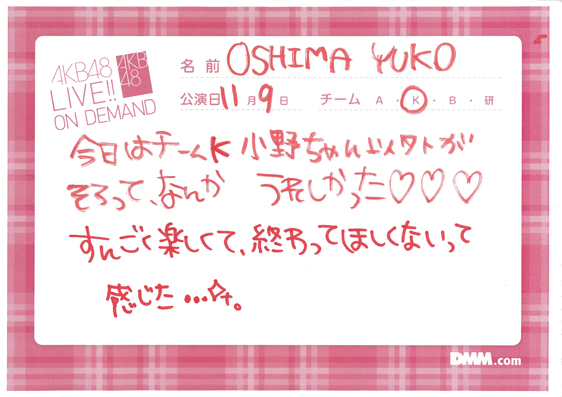 AKB48
LIVE!!
ON DEMAND
AKB
48
名前 OSHIMA YUKO
公演日 11月9日 チーム A・K・B・研
今日はチームK 小野ちゃん以外が
そろって、なんか うれしかった♡♡♡
すんごく楽しくて、終わってほしくないって
感じた...。
DMM.com